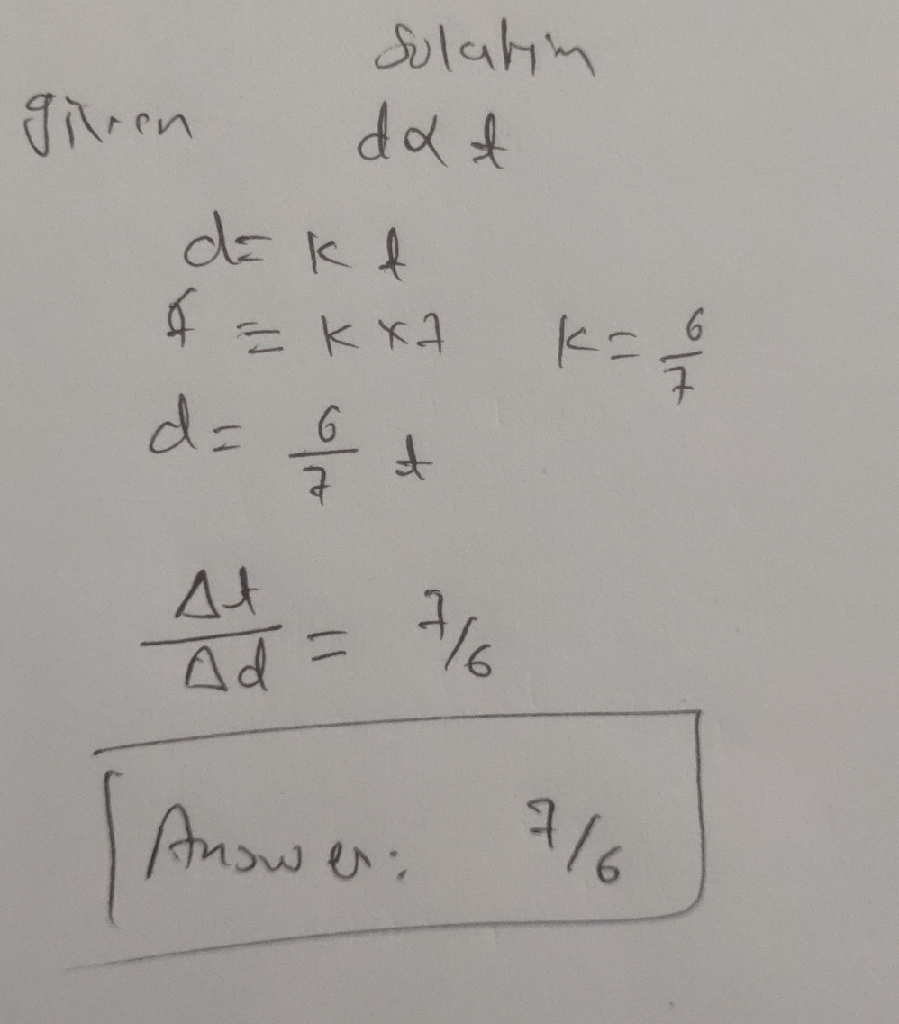 Solution
given d α t
d = k t
6 = k x 7 k = 6/7
d = 6/7 t
Δt/Δd = 7/6
Answer: 7/6